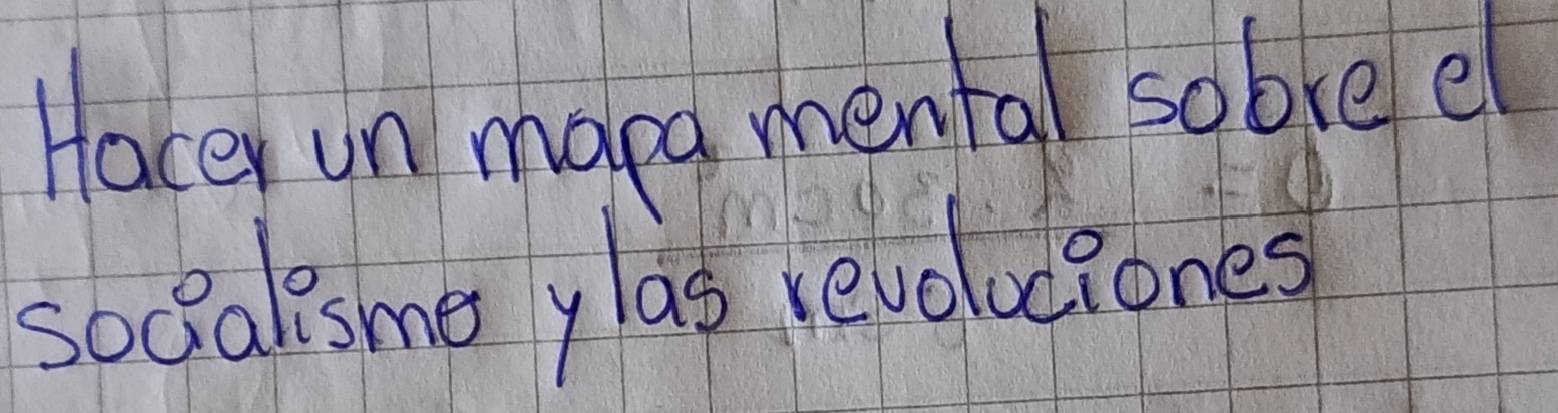 Hacer un mapa mental sobre el
socialismo y las revoluciones